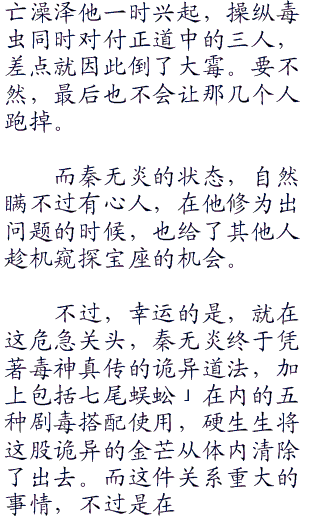 亡澡泽他一时兴起，操纵毒
虫同时对付正道中的三人，
差点就因此倒了大霉。要不
然，最后也不会让那几个人
跑掉。
而秦无炎的状态，自然
瞒不过有心人，在他修为出
问题的时候，也给了其他人
趁机窥探宝座的机会。
不过，幸运的是，就在
这危急关头，秦无炎终于凭
著毒神真传的诡异道法，加
上包括七尾蜈蚣」在内的五
种剧毒搭配使用，硬生生将
这股诡异的金芒从体内清除
了出去。而这件关系重大的
事情，不过是在